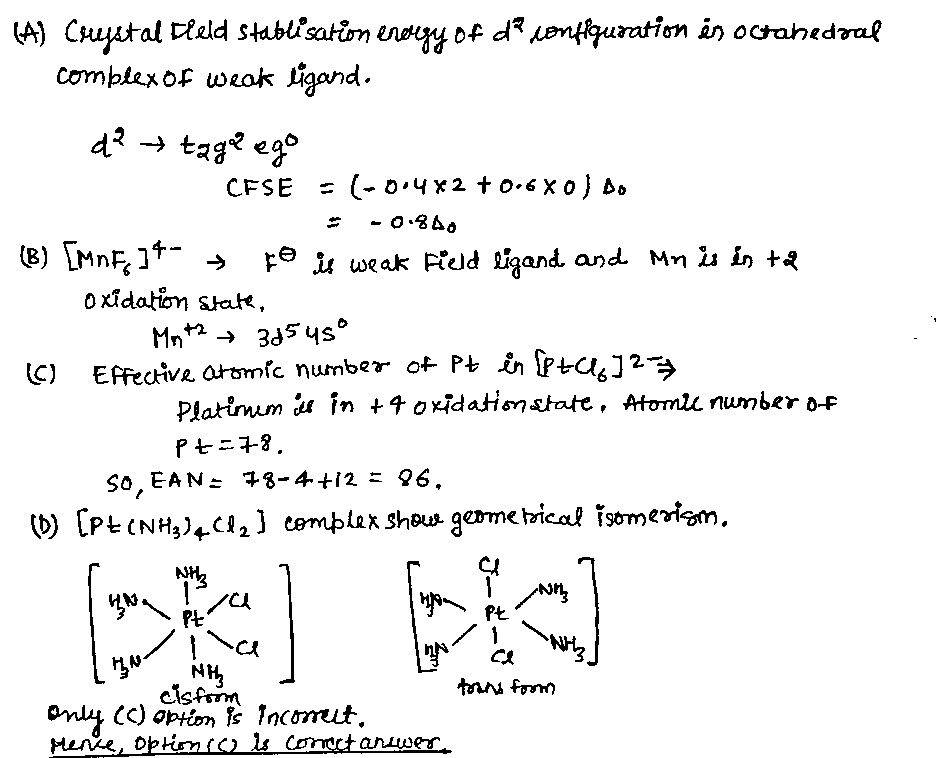 (A) Crystal Field stablisation energy of d² configuration in octahedral
complex of weak ligand.
d² → t₂g² eg⁰
CFSE = (-0.4×2 + 0.6×0) Δ₀
= -0.8Δ₀
(B) [MnF₆]⁴⁻ → F⊖ is weak Field ligand and Mn is in +2
oxidation state,
Mn⁺² → 3d⁵ 4s⁰
(C) Effective atomic number of Pt in [PtCl₆]²⁻ ⇒
Platinum is in +4 oxidation state, Atomic number of
Pt = 78.
So, EAN = 78-4+12 = 86.
(D) [Pt(NH₃)₄Cl₂] complex show geometrical isomerism.
NH₃ Cl
H₃N Cl H₃N NH₃
Pt Pt
H₃N Cl H₃N NH₃
NH₃ Cl
cis form trans form
Only (C) option is incorrect.
Hence, option (C) is correct answer.